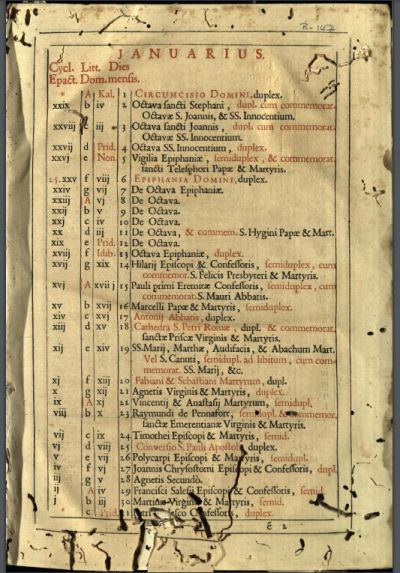 R-147
JANUARIUS.
Cycl. Litt. Dies
Epact. Dom. mensis.
* A Kal. 1 CIRCUMCISIO DOMINI, duplex.
xxix b iv 2 Octava sancti Stephani, dupl. cum commemorat.
Octavæ S. Joannis, & SS. Innocentium.
xxviij c iij 3 Octava sancti Joannis, dupl. cum commemorat.
Octavæ SS. Innocentium.
xxvij d Prid. 4 Octava SS. Innocentium, duplex.
xxvj e Non. 5 Vigilia Epiphaniæ, semiduplex, & commemorat.
sancti Telesphori Papæ & Martyris.
25. xxv f viij 6 EPIPHANIA DOMINI, duplex.
xxiv g vij 7 De Octava Epiphaniæ.
xxiij A vj 8 De Octava.
xxij b v 9 De Octava.
xxj c iv 10 De Octava.
xx d iij 11 De Octava, & commem. S. Hygini Papæ & Mart.
xix e Prid. 12 De Octava.
xviij f Idib. 13 Octava Epiphaniæ, duplex.
xvij g xix 14 Hilarij Episcopi & Confessoris, semiduplex, cum
commemor. S. Felicis Presbyteri & Martyris.
xvj A xviij 15 Pauli primi Eremitæ Confessoris, semiduplex, cum
commemorat. S. Mauri Abbatis.
xv b xvij 16 Marcelli Papæ & Martyris, semiduplex.
xiv c xvj 17 Antonij Abbatis, duplex.
xiij d xv 18 Cathedra S. Petri Romæ, dupl. & commemorat.
sanctæ Priscæ Virginis & Martyris.
xij e xiv 19 SS. Marij, Marthæ, Audifacis, & Abachum Mart.
Vel S. Canuti, semidupl. ad libitum, cum com-
memorat. SS. Marij, &c.
xj f xiij 20 Fabiani & Sebastiani Martyrum, dupl.
x g xij 21 Agnetis Virginis & Martyris, duplex.
ix A xj 22 Vincentij & Anastasij Martyrum, semidupl.
viij b x 23 Raymundi de Pennafort, semidupl. & commemor.
sanctæ Emerentianæ Virginis & Martyris.
vij c ix 24 Timothei Episcopi & Martyris, semid.
vj d viij 25 Conversio S. Pauli Apostoli, duplex.
v e vij 26 Polycarpi Episcopi & Martyris, semidupl.
iv f vj 27 Joannis Chrysostomi Episcopi & Confessoris, dupl.
iij g v 28 Agnetis Secundò.
ij A iv 29 Francisci Salesij Episcopi & Confessoris, semid.
j b iij 30 Martinæ Virginis & Martyris, semid.
c Prid. 31 Confessoris, duplex.